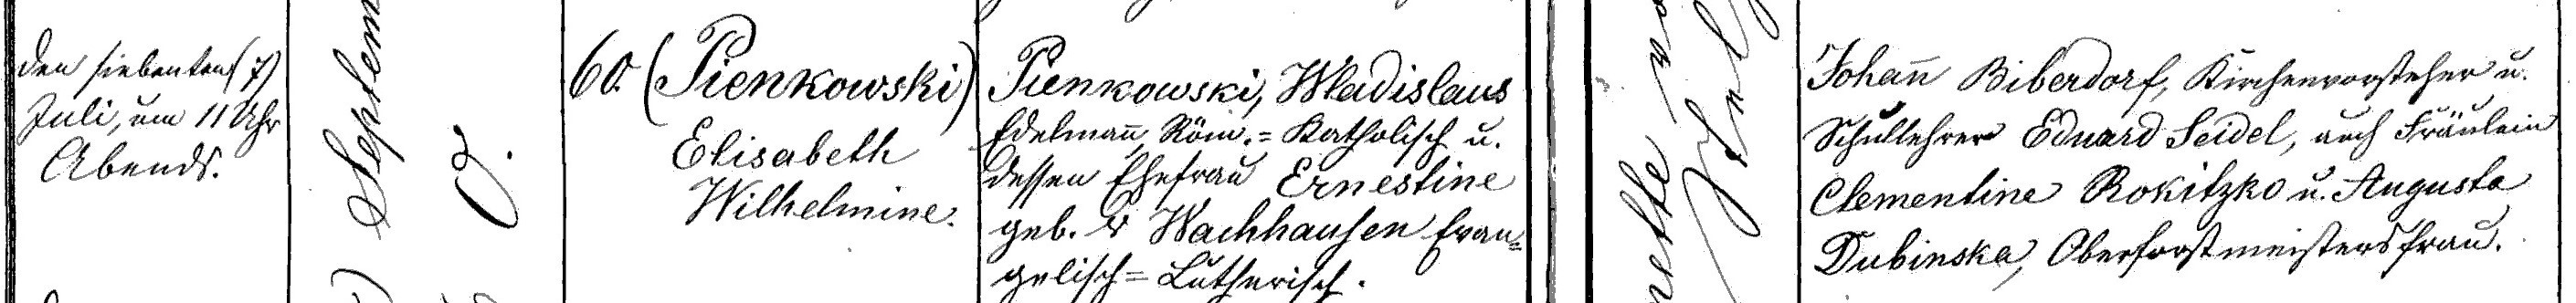 den siebenten (7)
Juli, um 11 Uhr
Abends.
Septem
60. (Pienkowski)
Elisabeth
Wilhelmine.
Pienkowski, Wladislaus
Edelmann, Röm.=Katholisch u.
dessen Ehefrau Ernestine
geb. v Wachhausen Evan=
gelisch=Lutherisch.
Johann Biberdorf, Kirchenvorsteher u.
Schullehrer Eduard Seidel, auch Fräulein
Clementine Rokitzko u. Augusta
Dubinska, Oberforstmeistersfrau.